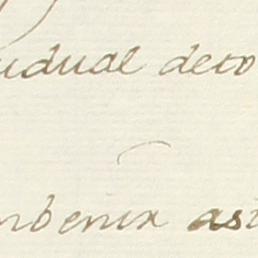 udual deto
nbenix ast